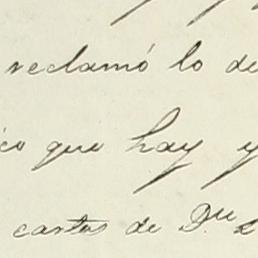 reclamó lo de
co que hay y
cartas de Dn